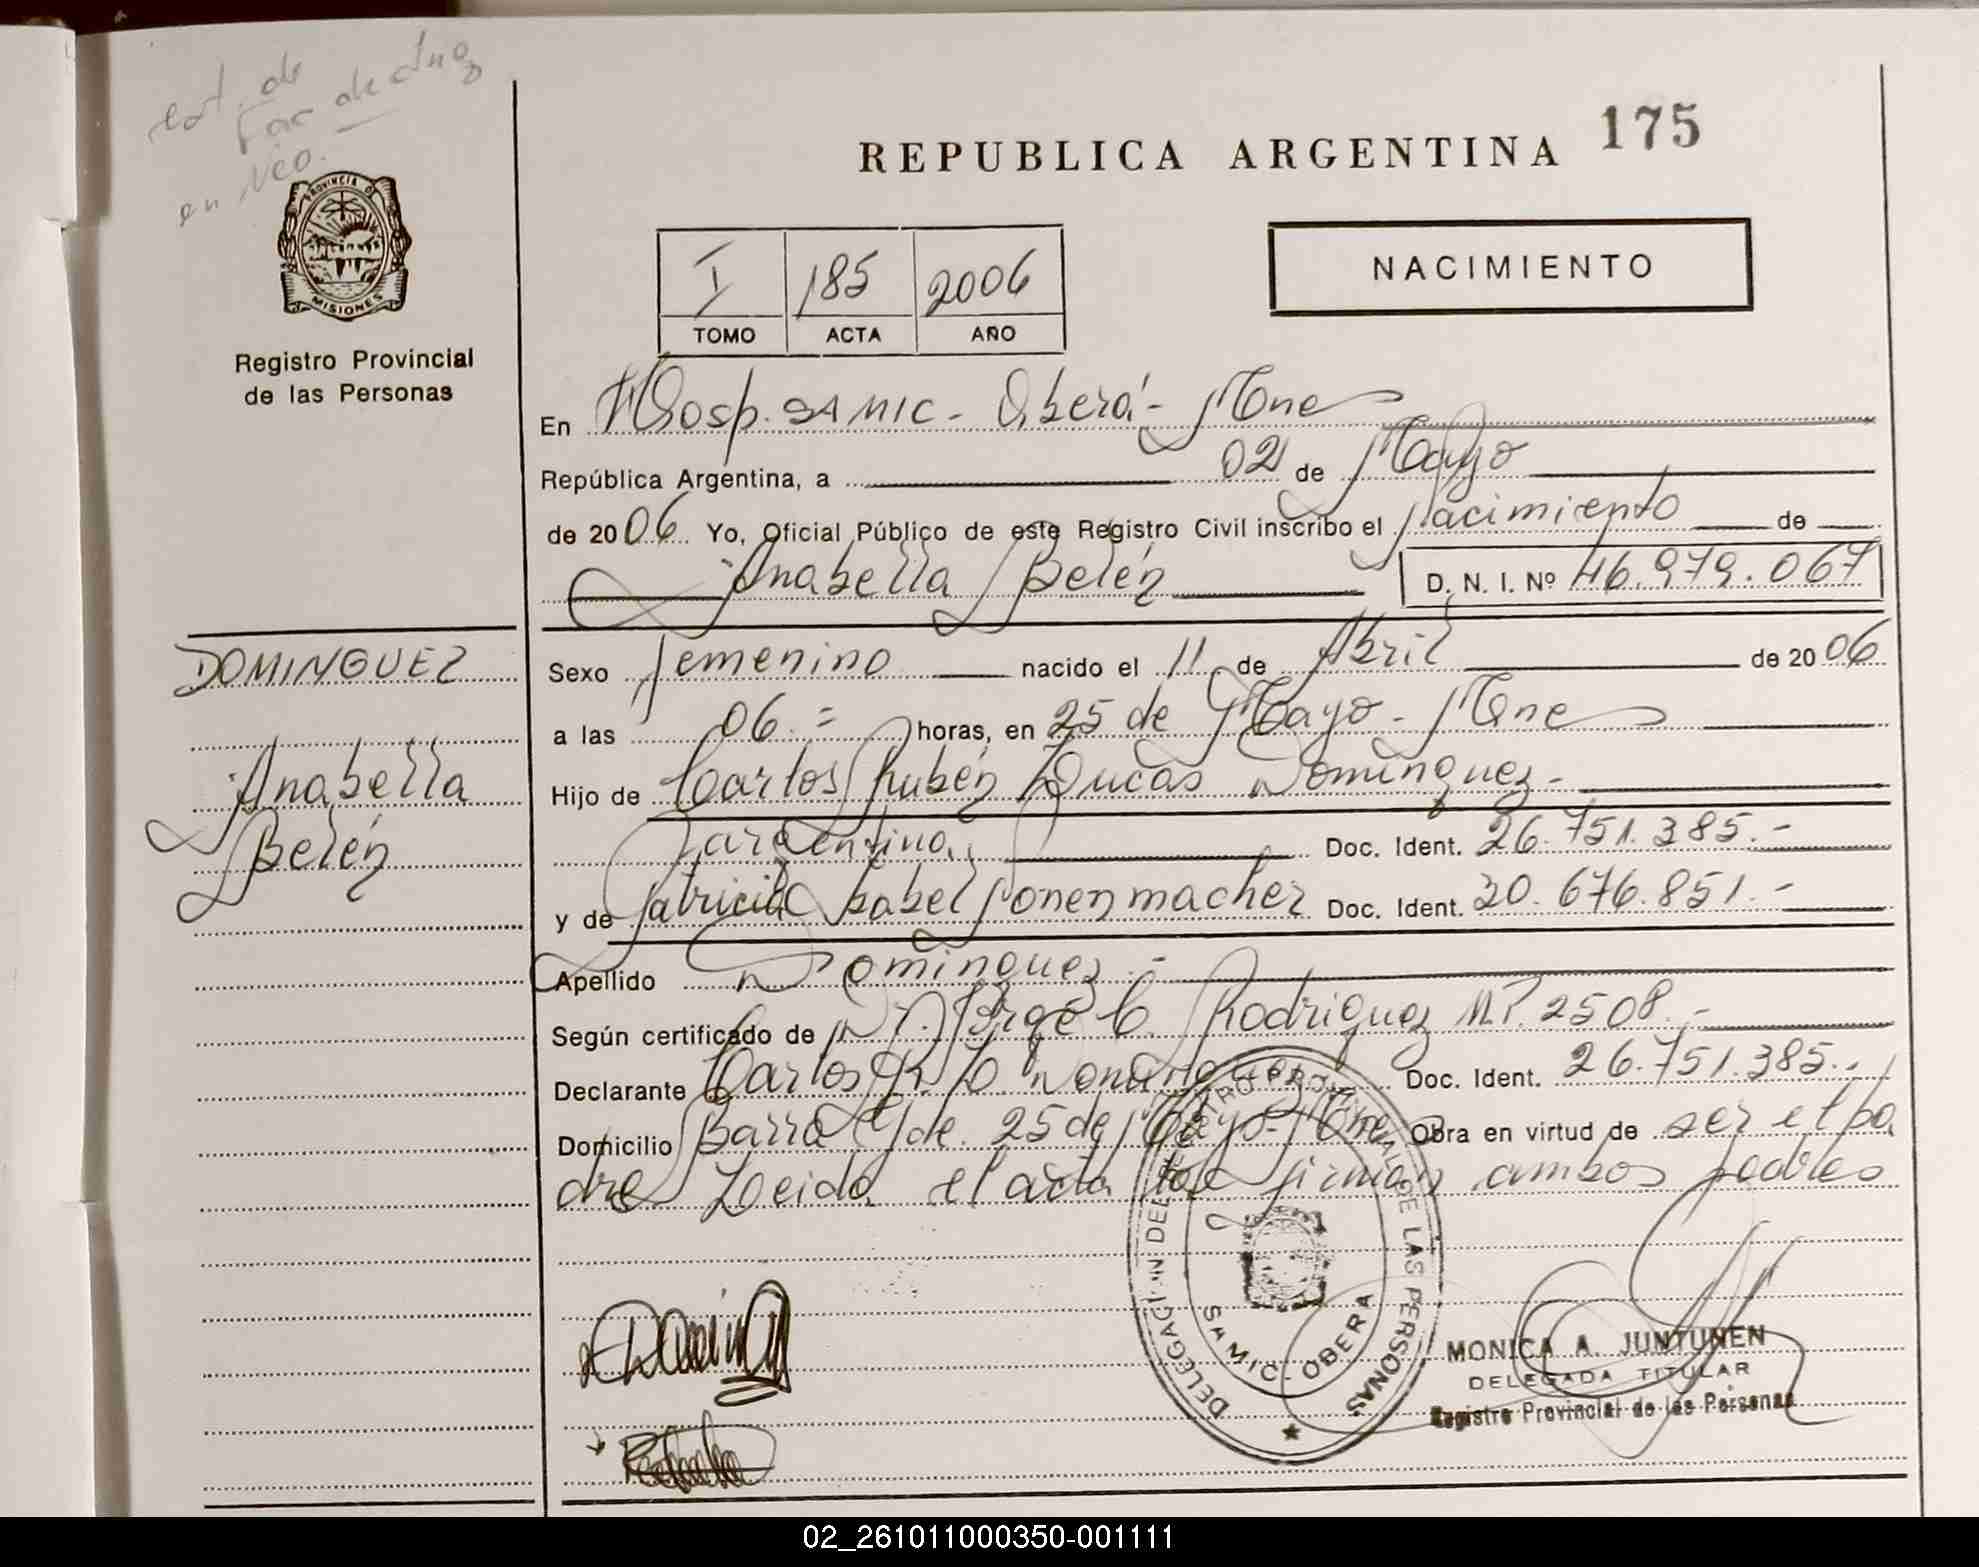 en Nco.
175
REPUBLICA ARGENTINA
PROVINCIA DE
MISIONES
Registro Provincial
de las Personas
I 185 2006
TOMO ACTA AÑO
NACIMIENTO
En Hosp. SAMIC - Oberá - Mnes
República Argentina, a 02 de Mayo
de 2006 Yo, Oficial Público de este Registro Civil inscribo el Nacimiento de
Anabella Belén D. N. I. Nº 46.979.067
DOMINGUEZ
Anabella
Belén
Sexo femenino nacido el 11 de Abril de 2006
a las 06.= horas, en 25 de Mayo - Mnes
Hijo de Carlos Rubén Lucas Dominguez.-
argentino. Doc. Ident. 26.751.385.-
y de Patricia Isabel Sonenmacher Doc. Ident. 30.676.851.-
Apellido Dominguez.-
Según certificado de Dr. Jorge C. Rodriguez M.P. 2508.-
Declarante Carlos R. L. Dominguez Doc. Ident. 26.751.385.-
Domicilio Barra Gde. 25 de Mayo - Mnes Obra en virtud de ser el pa
dre Leida el acta la firman ambos padres
DELEGACION DEL REGISTRO PROVINCIAL DE LAS PERSONAS
SAMIC - OBERA
MONICA A. JUNTUNEN
DELEGADA TITULAR
Registro Provincial de las Personas
02_261011000350-001111